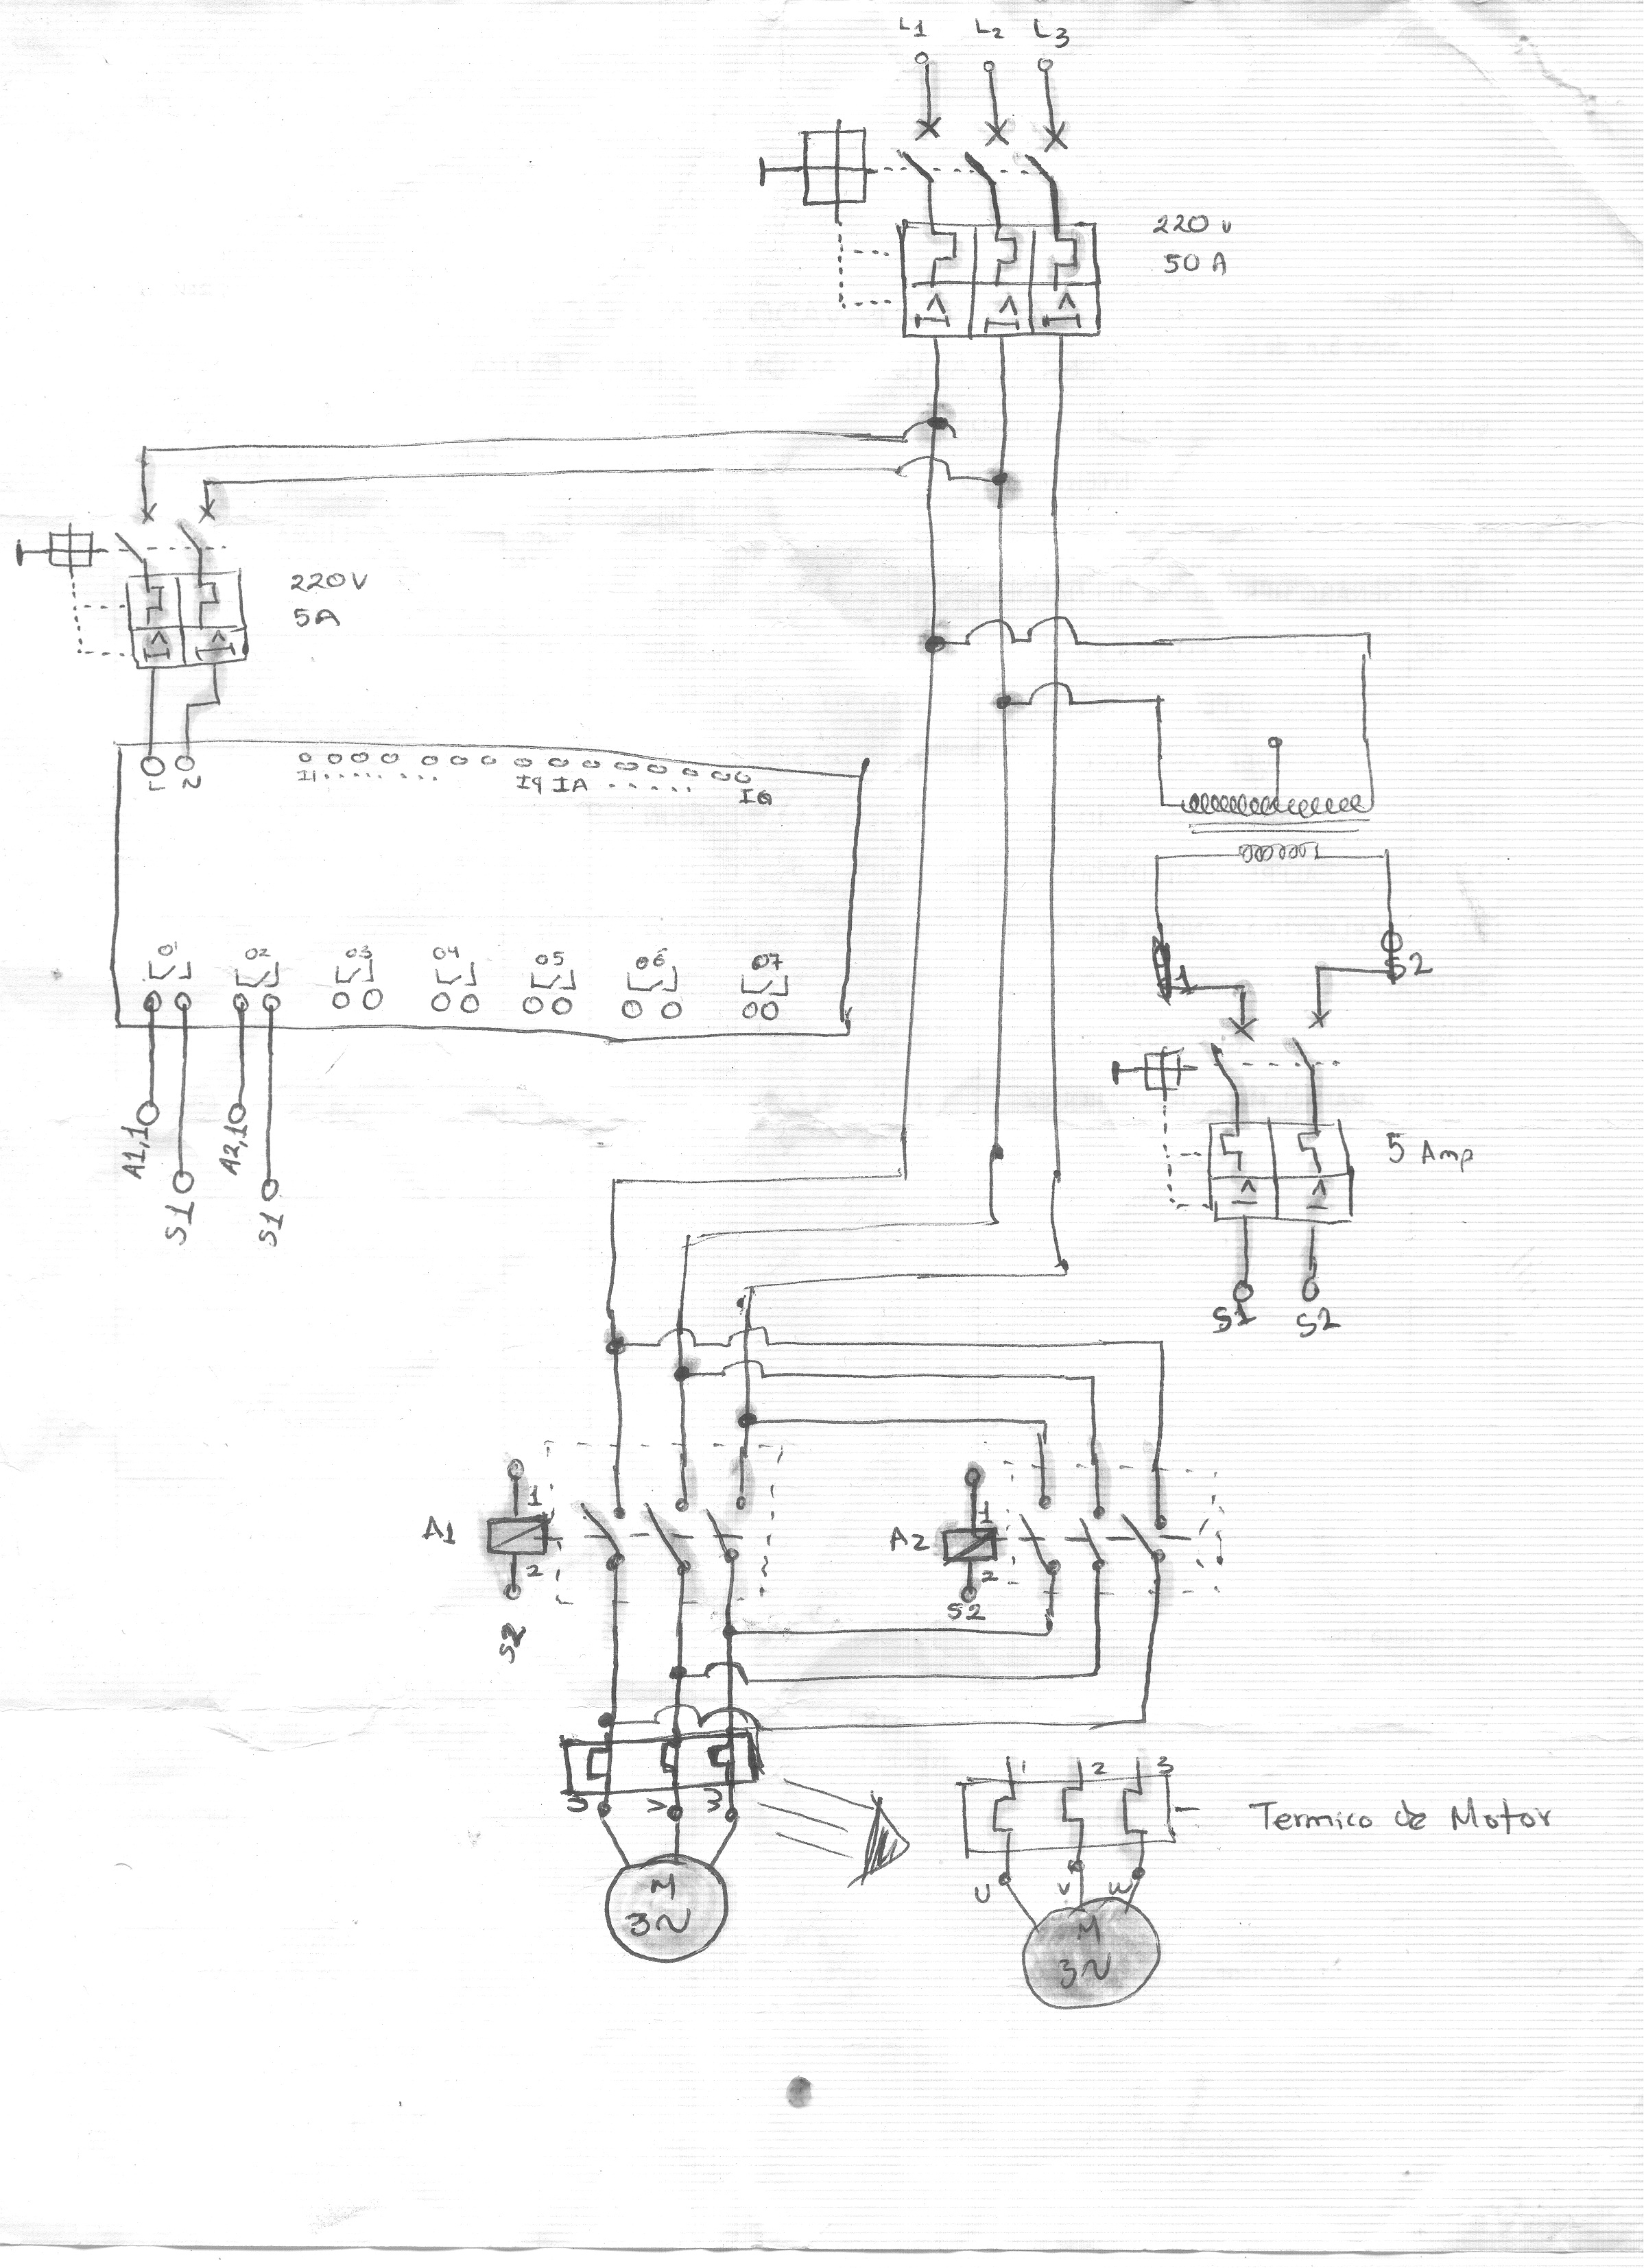 L1 L2 L3
220 v
50 A
220V
5A
L N
I1......... I9 IA ...... IG
O1 O2 O3 O4 O5 O6 O7
1
S2
A1,1
S1
A2,1
S1
5 Amp
S1 S2
A1
1
2
S2
A2
1
2
S2
U V W
M
3~
1 2 3
Termico de Motor
U V W
M
3~